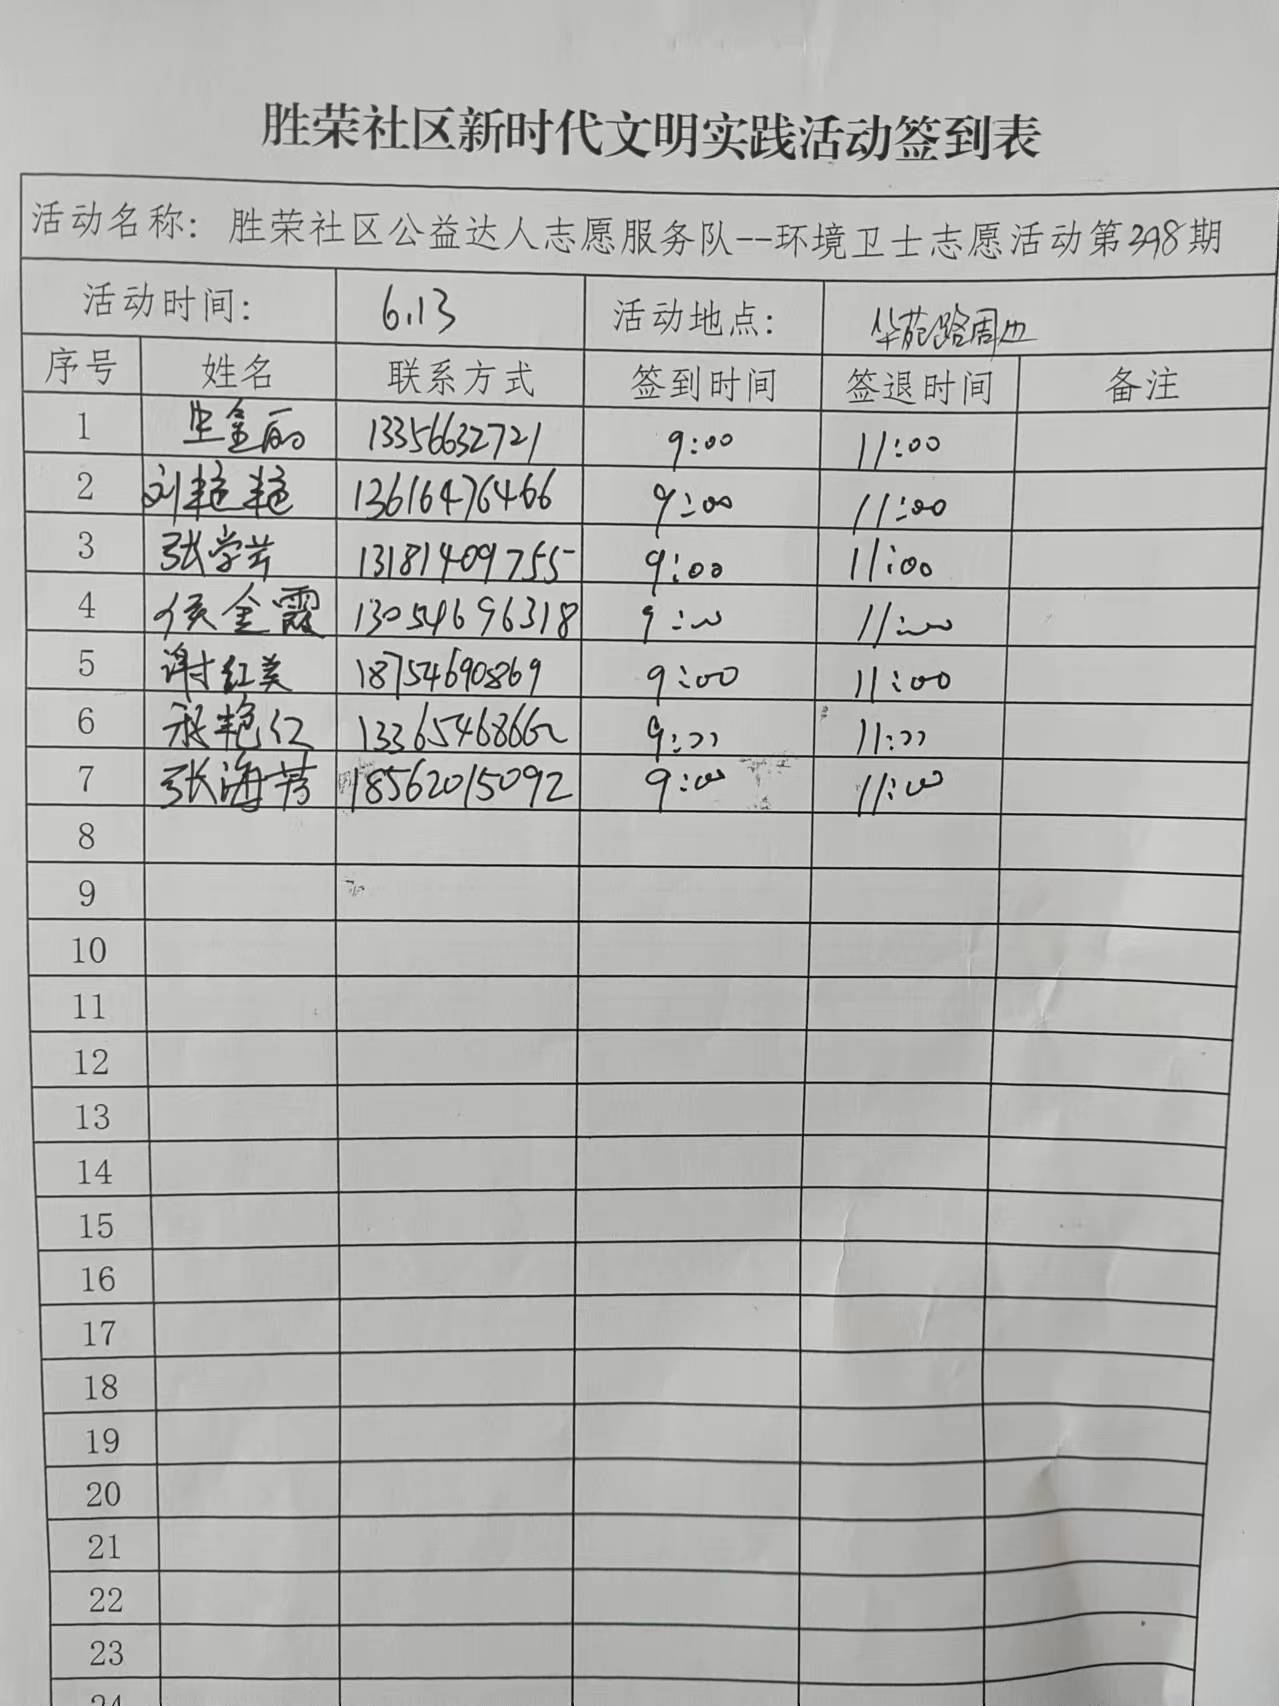 胜荣社区新时代文明实践活动签到表
活动名称: 胜荣社区公益达人志愿服务队--环境卫士志愿活动第398期
活动时间: 6.13 活动地点: 华苑路周边
序号 姓名 联系方式 签到时间 签退时间 备注
1 金丽 13356632721 9:00 11:00
2 刘艳艳 13616476466 9:00 11:00
3 张学芬 13181409755 9:00 11:00
4 侯金霞 13054696318 9:00 11:00
5 谢红美 18754690869 9:00 11:00
6 张艳红 9:00 11:00
7 张海芳 18562015092 9:00 11:00
8
9
10
11
12
13
14
15
16
17
18
19
20
21
22
23
24